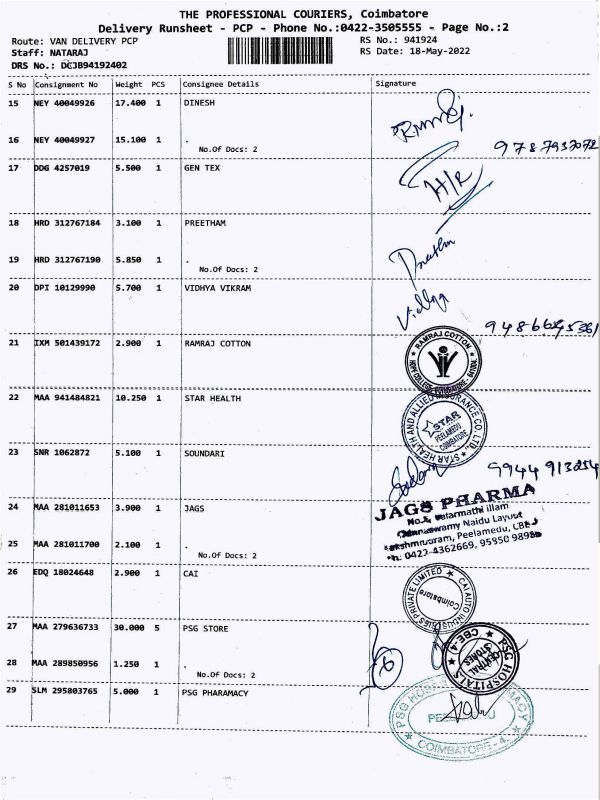 THE PROFESSIONAL COURIERS, Coimbatore
Delivery Runsheet - PCP - Phone No.:0422-3505555 - Page No.:2
Route: VAN DELIVERY PCP
RS No.: 941924
Staff: NATARAJ
RS Date: 18-May-2022
DRS No.: DCJB94192402
S No Consignment No Weight PCS Consignee Details Signature
15 NEY 40049926 17.400 1 DINESH
16 NEY 40049927 15.100 1 .
No.Of Docs: 2
9787937072
17 DDG 4257019 5.500 1 GEN TEX
H/R
18 HRD 312767184 3.100 1 PREETHAM
19 HRD 312767190 5.850 1 .
No.Of Docs: 2
20 DPI 10129990 5.700 1 VIDHYA VIKRAM
Vidhya
21 IXM 501439172 2.900 1 RAMRAJ COTTON
RAMRAJ COTTON
22 MAA 941484821 10.250 1 STAR HEALTH
STAR HEALTH AND ALLIED INSURANCE CO. LTD
STAR
PEELAMEDU
COIMBATORE
23 SNR 1062872 5.100 1 SOUNDARI
9944 913254
24 MAA 281011653 3.900 1 JAGS
JAGS PHARMA
Naidu Layout
Peelamedu, CBE
0422-4362669,
25 MAA 281011700 2.100 1 .
No.Of Docs: 2
26 EDQ 18024648 2.900 1 CAI
CAI AUTO INDUSTRIES PRIVATE LIMITED
Coimbatore
27 MAA 279636733 30.000 5 PSG STORE
PSG HOSPITALS
CBE-4
CENTRAL
STORES
28 MAA 289850956 1.250 1 .
No.Of Docs: 2
29 SLM 295803765 5.000 1 PSG PHARAMACY
COIMBATORE - 4.